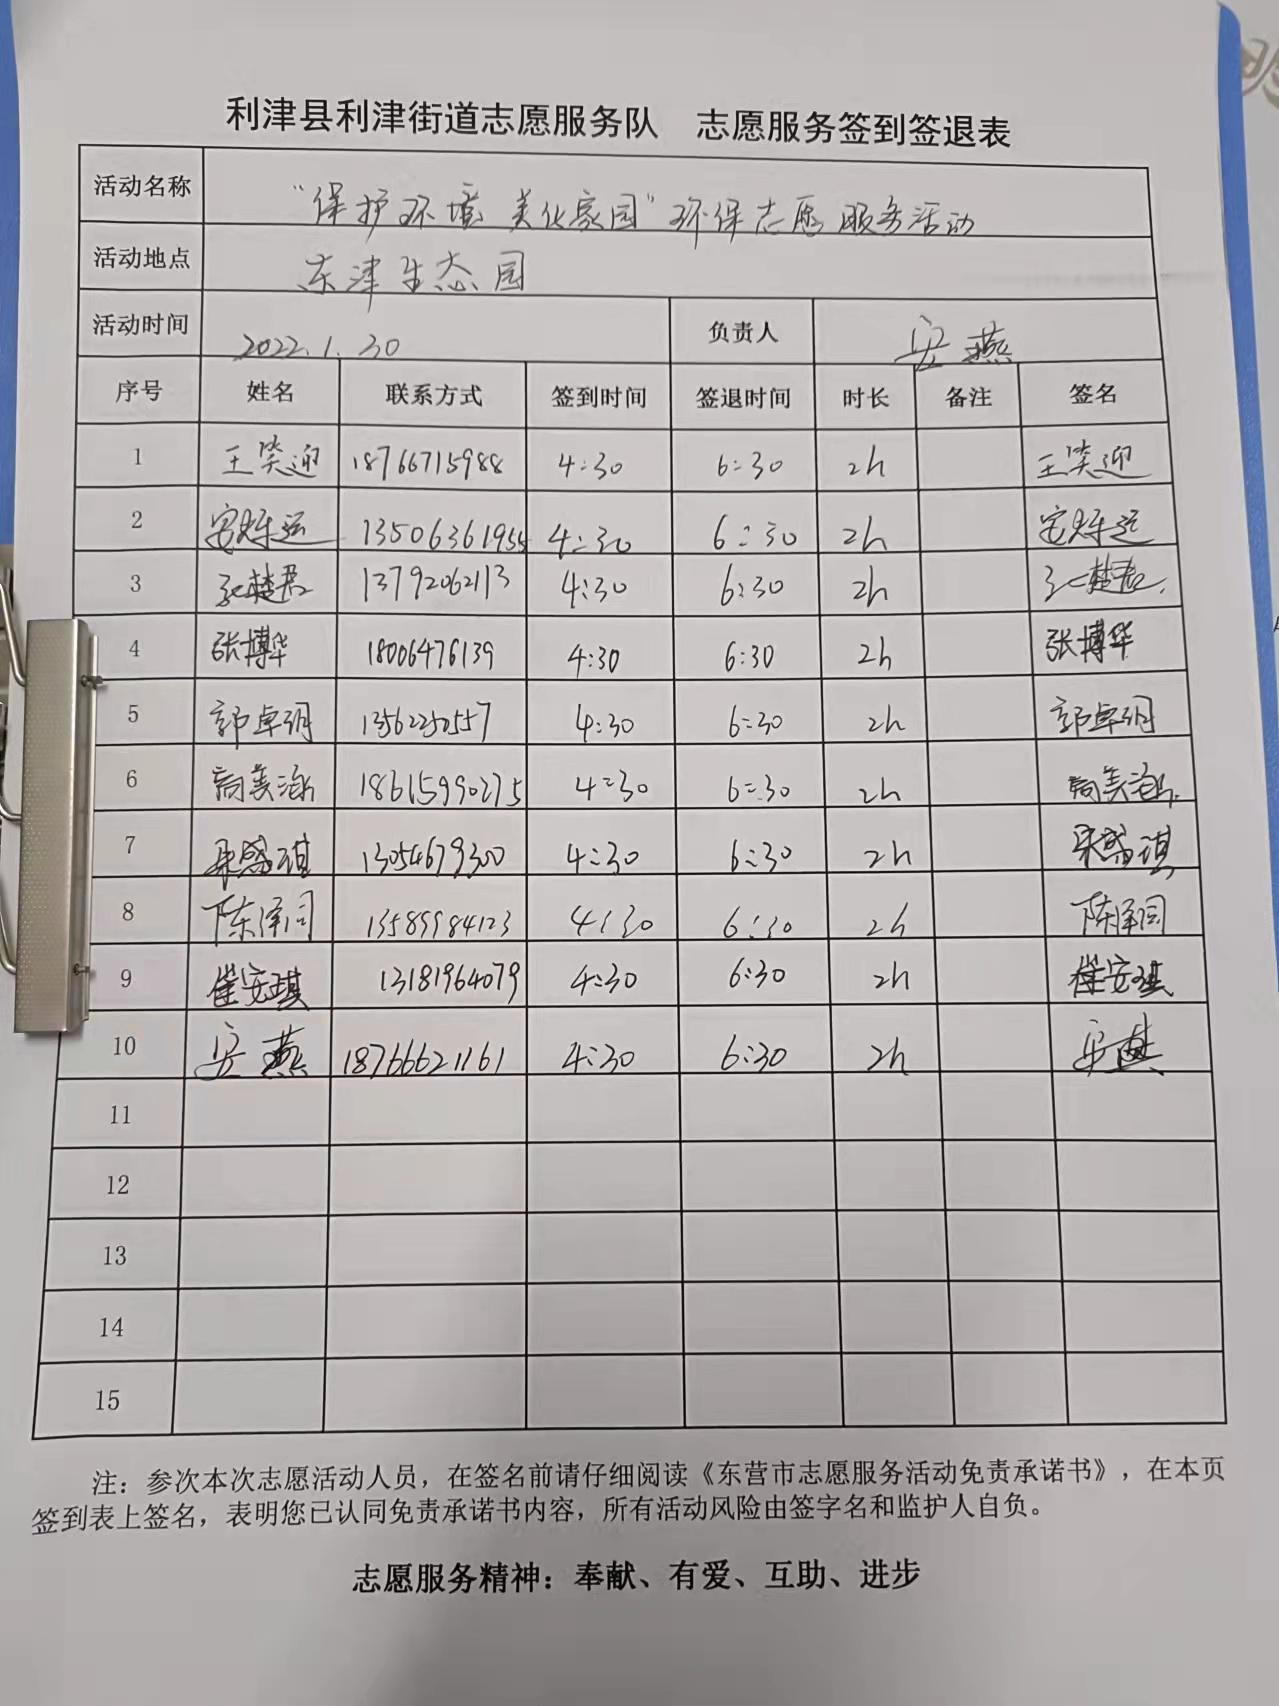 利津县利津街道志愿服务队 志愿服务签到签退表
活动名称 "保护环境 美化家园"环保志愿服务活动
活动地点 东津生态园
活动时间 2022.1.30 负责人 安燕
序号 姓名 联系方式 签到时间 签退时间 时长 备注 签名
1 王笑迎 18766715988 4:30 6:30 2h 王笑迎
2 13506361955 4:30 6:30 2h
3 张楚君 13792062113 4:30 6:30 2h 张楚君
4 张博华 18006476139 4:30 6:30 2h 张博华
5 郭卓玥 4:30 6:30 2h 郭卓玥
6 18615990275 4:30 6:30 2h
7 13054679300 4:30 6:30 2h
8 陈泽同 13589984123 4:30 6:30 2h 陈泽同
9 崔安琪 13181964079 4:30 6:30 2h 崔安琪
10 安燕 18766621161 4:30 6:30 2h 安燕
11
12
13
14
15
注：参次本次志愿活动人员，在签名前请仔细阅读《东营市志愿服务活动免责承诺书》，在本页
签到表上签名，表明您已认同免责承诺书内容，所有活动风险由签字名和监护人自负。
志愿服务精神：奉献、有爱、互助、进步